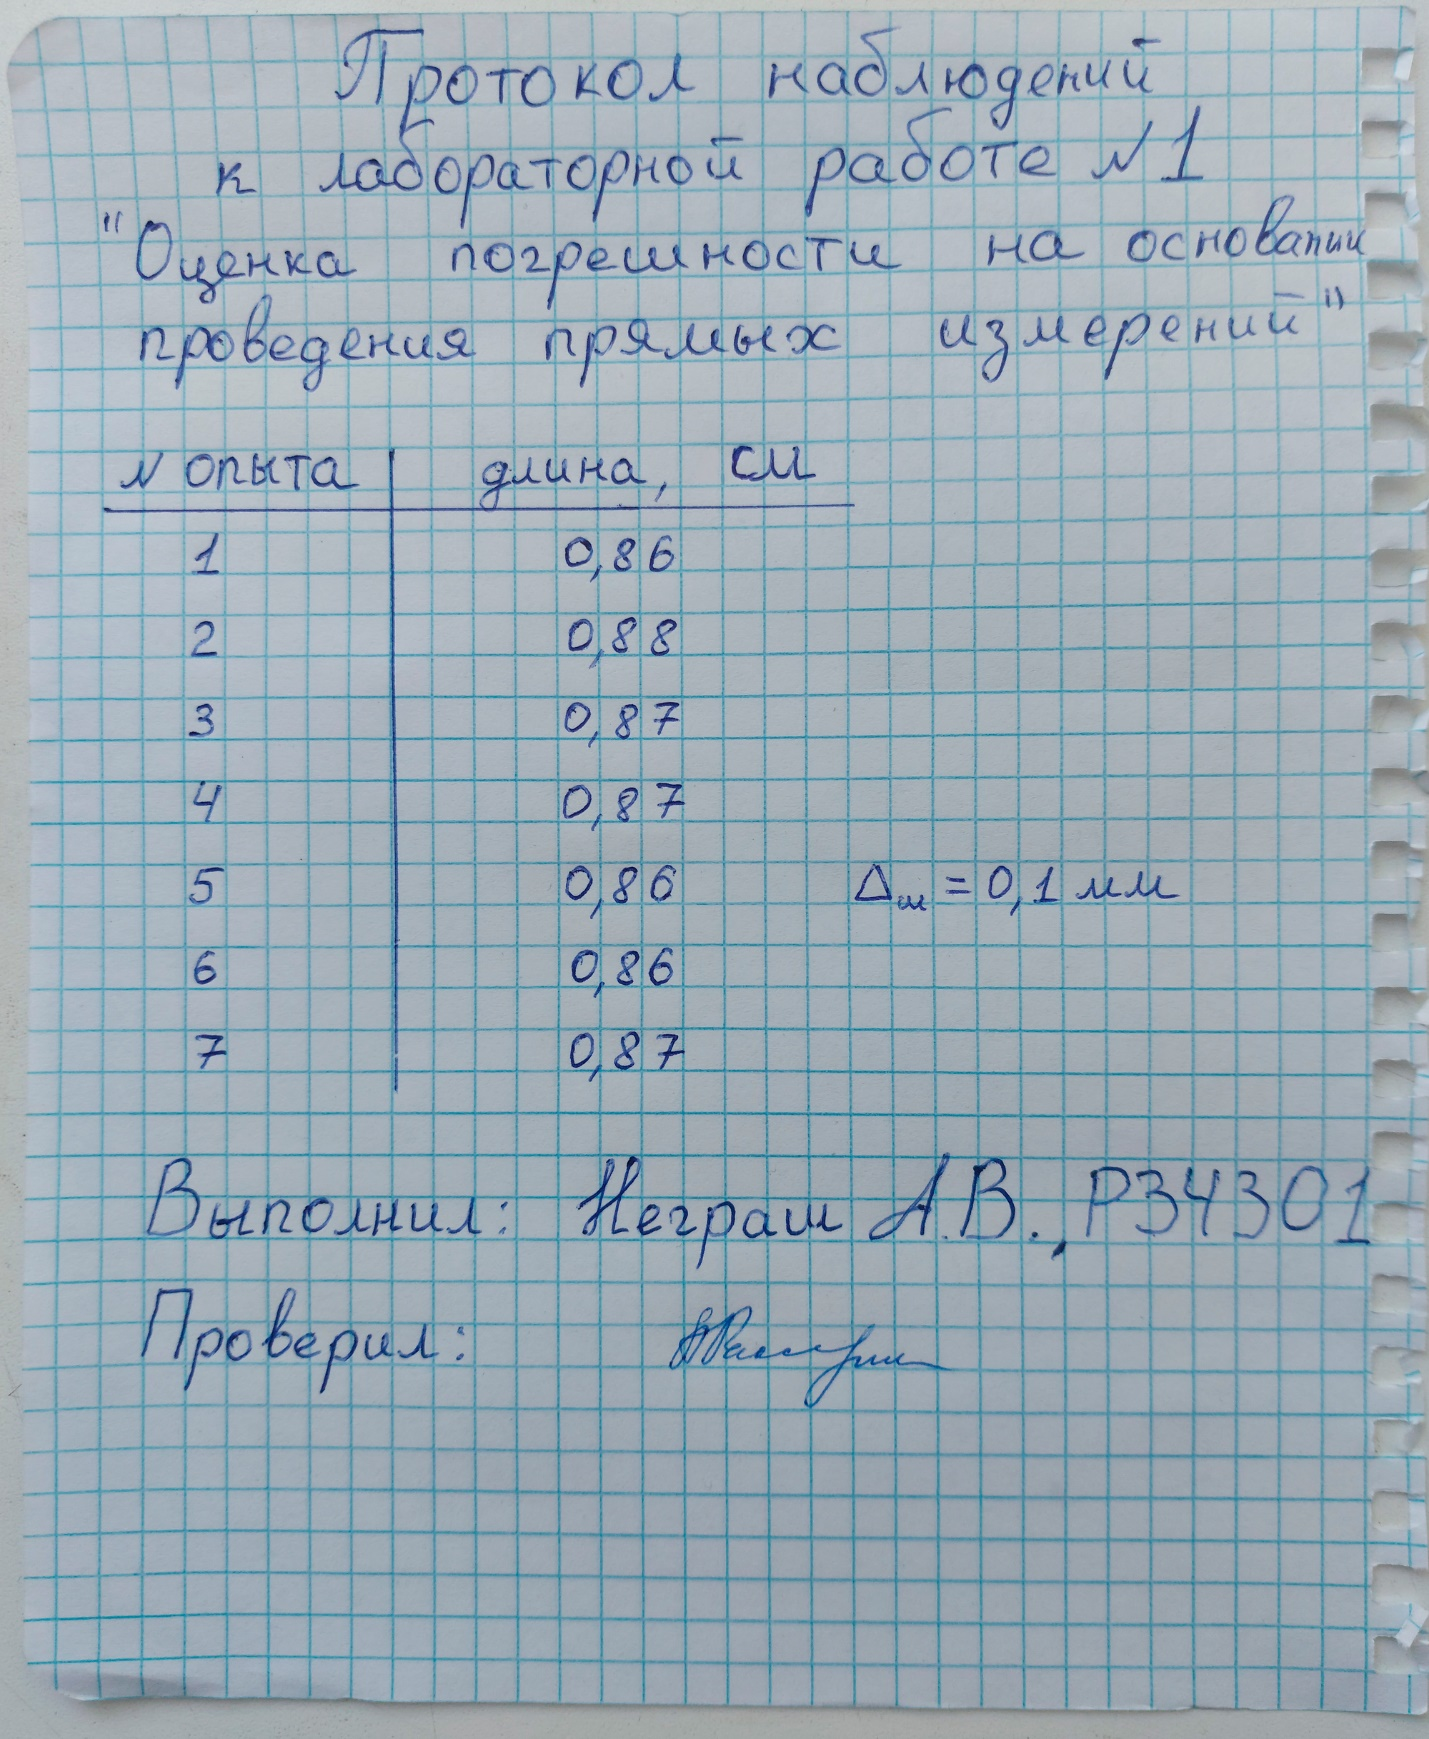 Протокол наблюдений
к лабораторной работе N1
"Оценка погрешности на основании
проведения прямых измерений"
N опыта длина, см
1 0,86
2 0,88
3 0,87
4 0,87
5 0,86 Δш = 0,1 мм
6 0,86
7 0,87
Выполнил: Неграш А.В., Р34301
Проверил: